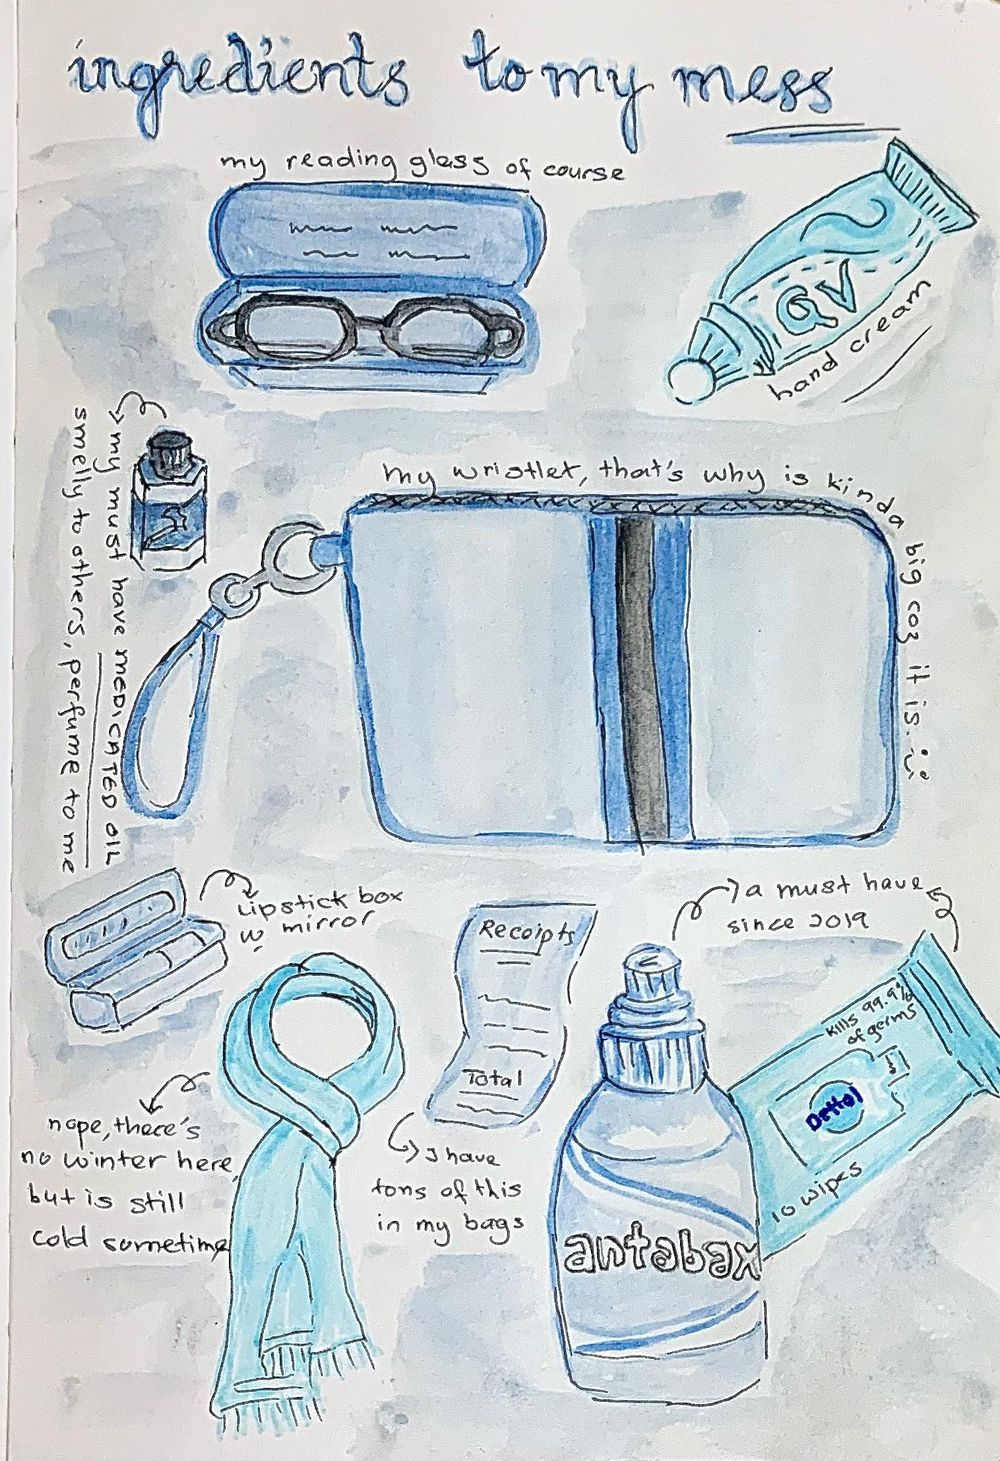 ingredients to my mess
my reading glass of course
QV
hand cream
my must have MEDICATED OIL
smelly to others, perfume to me
my wristlet, that's why is kinda big coz it is. :)
Lipstick box
w mirror
Receipts
Total
a must have
since 2019
kills 99.9%
of germs
Dettol
10 wipes
nope, there's
no winter here
but is still
cold sometime
I have
tons of this
in my bags
antabax